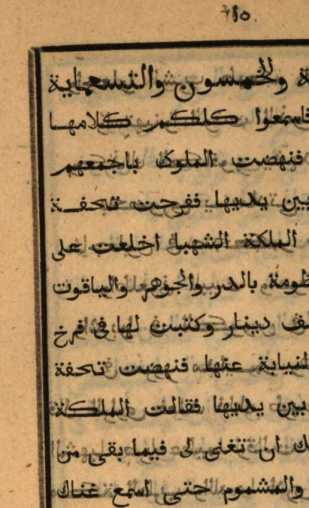 ٢١٥
ة والخمسون والتسعماية
فاسمعوا كلكم كلامها
فنهضت الملوك باجمعهم
بين يديها ففرحت تحفة
الملكة الشهبا اخلعت على
ظومة بالدر والجوهر والياقوت
ف دينار وكتبت لها في فرخ
لنيابة عنها فنهضت تحفة
بين يديها فقالت الملكة
ك ان تغنى لى فيما بقى من
والمشموم حتى اسمع غناك